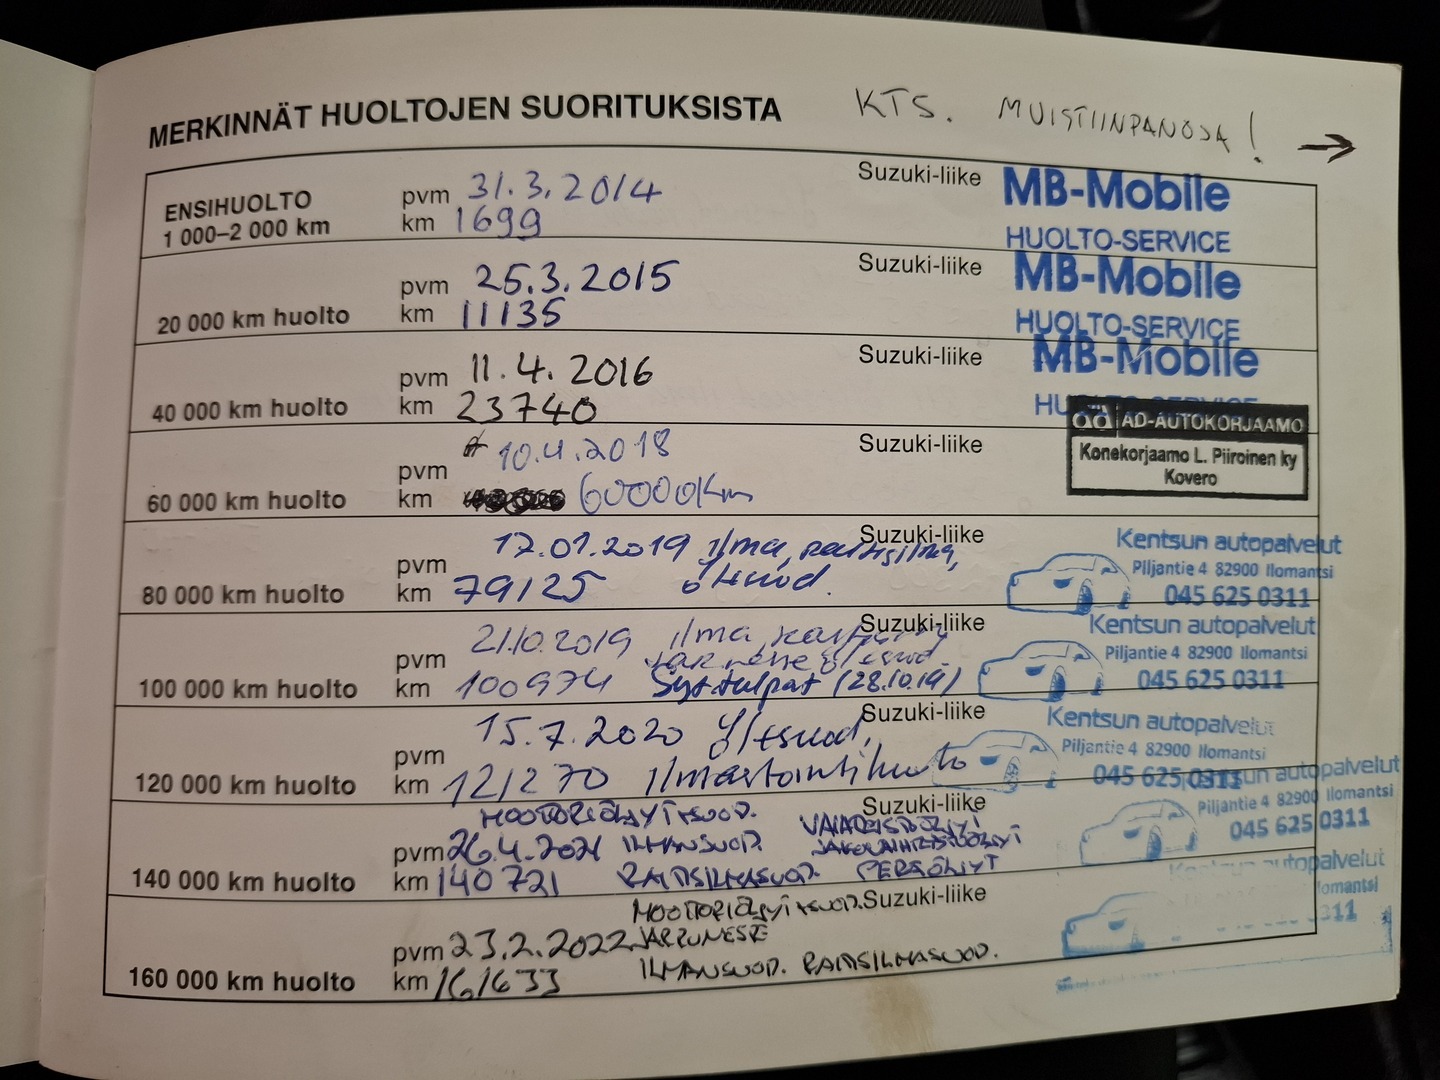 MERKINNÄT HUOLTOJEN SUORITUKSISTA KTS. MUISTIINPANOJA! →
ENSIHUOLTO
1 000–2 000 km
pvm 31.3.2014
km 1699
Suzuki-liike
MB-Mobile
HUOLTO-SERVICE
20 000 km huolto
pvm 25.3.2015
km 11135
Suzuki-liike
MB-Mobile
HUOLTO-SERVICE
40 000 km huolto
pvm 11.4.2016
km 23740
Suzuki-liike
MB-Mobile
HUOLTO-SERVICE
60 000 km huolto
pvm 10.4.2018
km 60000km
Suzuki-liike
AD-AUTOKORJAAMO
Konekorjaamo L. Piiroinen ky
Kovero
80 000 km huolto
pvm 17.01.2019 ilma, raitisilma,
km 79125 öljysuod.
Suzuki-liike
Kentsun autopalvelut
Piljantie 4 82900 Ilomantsi
045 625 0311
100 000 km huolto
pvm 21.10.2019 ilma,
jarruneste öljysuod.
km 100974 Syt.tulpat (28.10.19)
Suzuki-liike
Kentsun autopalvelut
Piljantie 4 82900 Ilomantsi
045 625 0311
120 000 km huolto
pvm 15.7.2020 Öljysuod,
km 121270 ilmastointihuolto
Suzuki-liike
Kentsun autopalvelut
Piljantie 4 82900 Ilomantsi
045 625 0311
140 000 km huolto
MOOTTORIÖLJY+SUOD. VAIHTEISTOÖLJY
pvm 26.4.2021 ILMANSUOD. JAKOVAIHTEISTOÖLJYT
km 140721 RAITISILMASUOD. PERÄÖLJYT
Suzuki-liike
Kentsun autopalvelut
Piljantie 4 82900 Ilomantsi
045 625 0311
160 000 km huolto
MOOTTORIÖLJY+SUOD.
pvm 23.2.2022 JARRUNESTE
km 161633 ILMANSUOD. RAITISILMASUOD.
Suzuki-liike
Kentsun autopalvelut